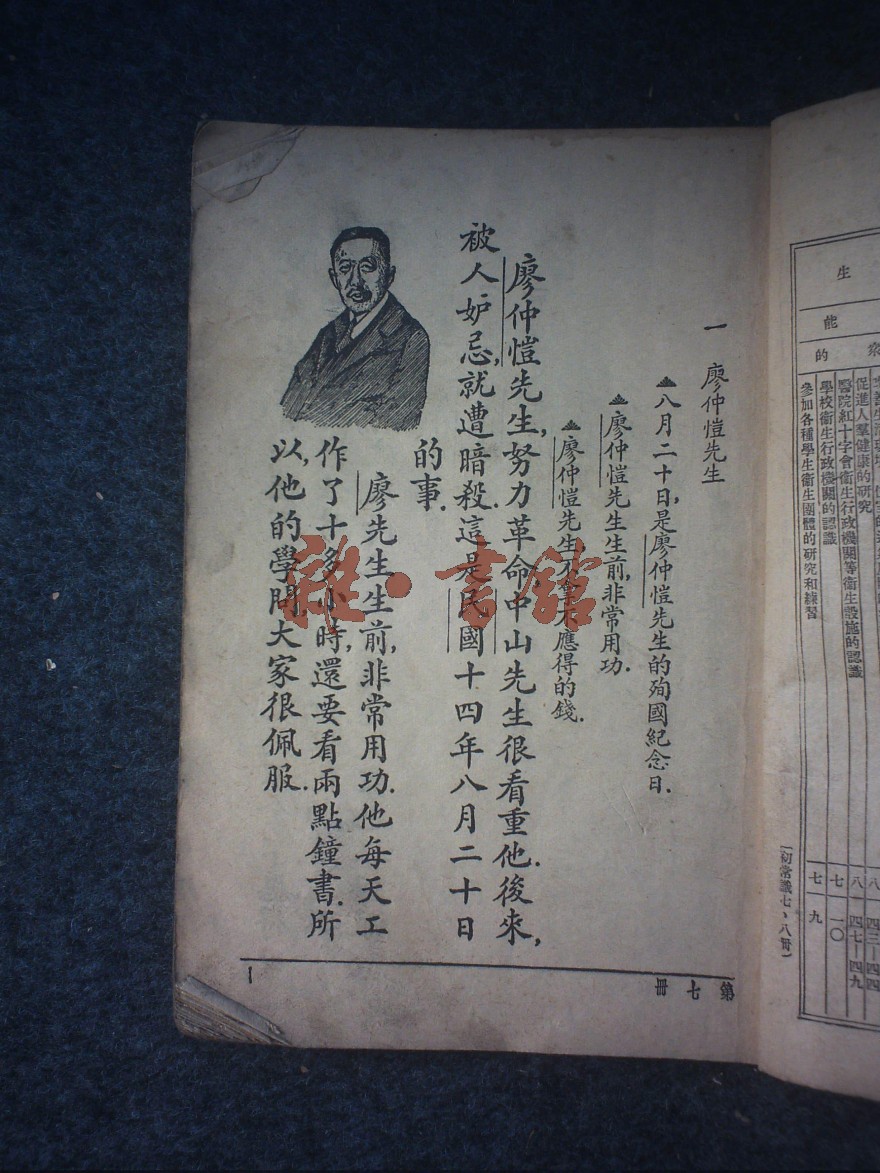 生
能
的 衆
促進人羣健康的研究
醫院紅十字會衞生行政機關等衞生設施的認識
學校衞生行政機關的認識
參加各種學生衞生團體的研究和練習
八 四三—四四
八 四七—四九
七 一〇
七 九
(初常識七、八冊)
一 廖仲愷先生
八月二十日,是廖仲愷先生的殉國紀念日.
廖仲愷先生生前,非常用功.
廖仲愷先生,不拿不應得的錢.
廖仲愷先生,努力革命,中山先生很看重他.後來,
被人妒忌,就遭暗殺.這是民國十四年八月二十日
的事.
廖先生生前,非常用功.他每天工
作了十多小時,還要看兩點鐘書.所
以,他的學問,大家很佩服.
第七冊
1
雜·書館